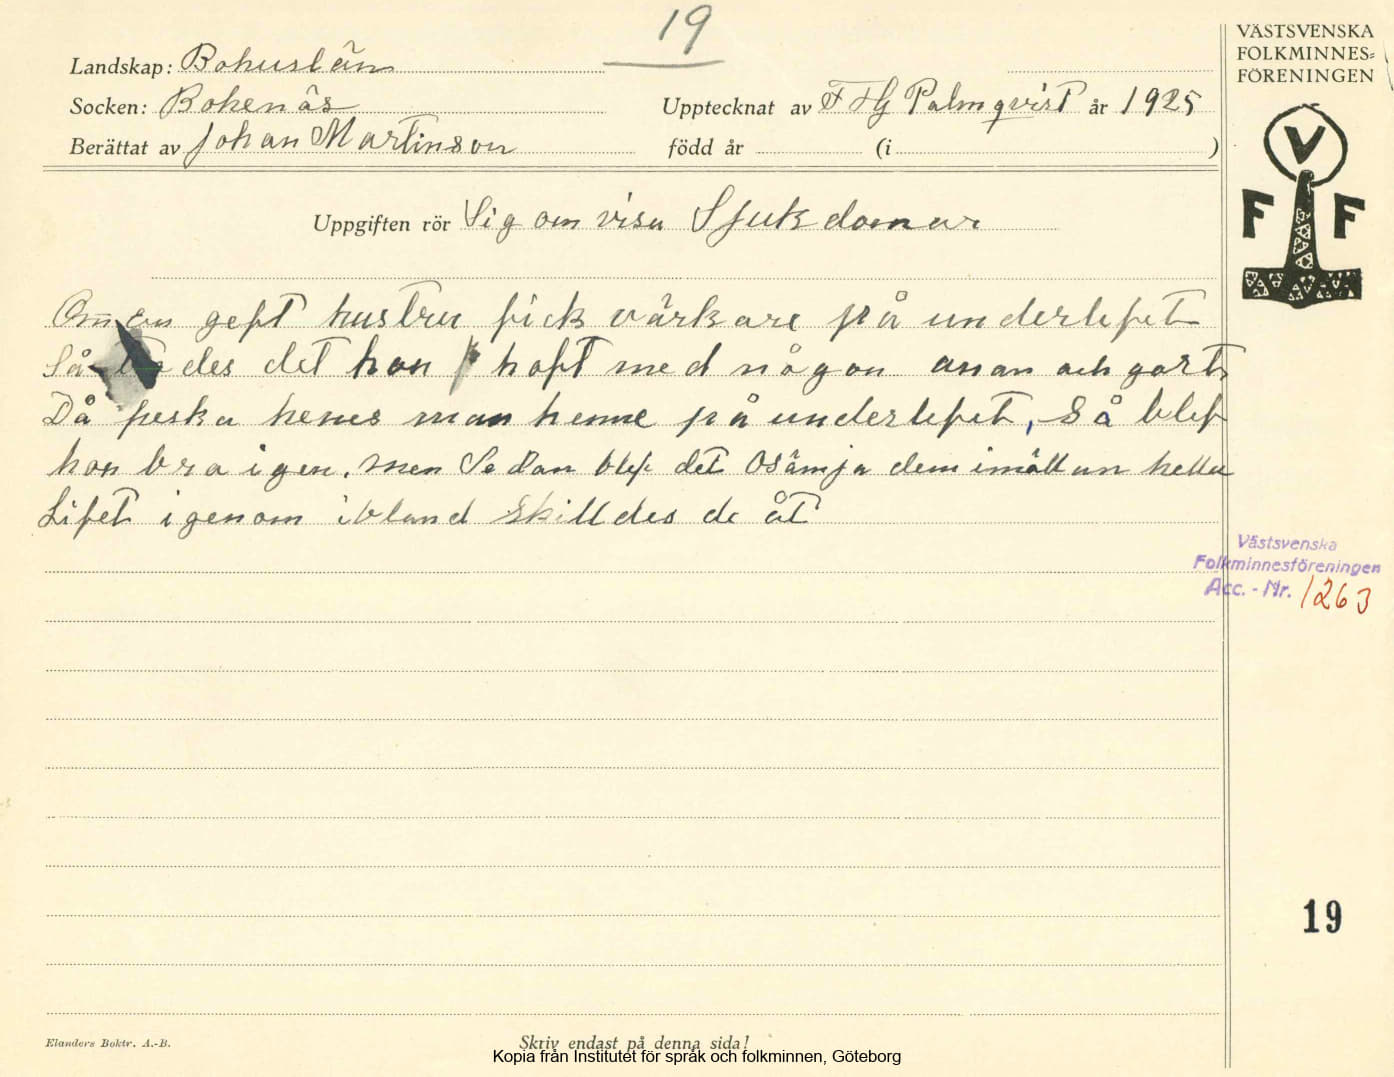 19
VÄSTSVENSKA
FOLKMINNES-
FÖRENINGEN
Landskap: Bohuslän
Socken: Bokenäs
Upptecknat av F HG Palmqvist år 1925
Berättat av Johan Martinson
född år (i )
V
F F
Uppgiften rör Sig om visu Sjukdomar
Om En gept hustru fick värkare på underlifvet
Så des det hon haft med någon anan och gort
Då feska henes man henne på underlifvet, Så blef
hon bra igen. men Sedan blef det Osämja dem imällan hella
Lifvet igenom ibland skilldes de åt
Västsvenska
Folkminnesföreningen
Acc. - Nr. 1263
19
Elanders Boktr. A.-B.
Skriv endast på denna sida!
Kopia från Institutet för språk och folkminnen, Göteborg